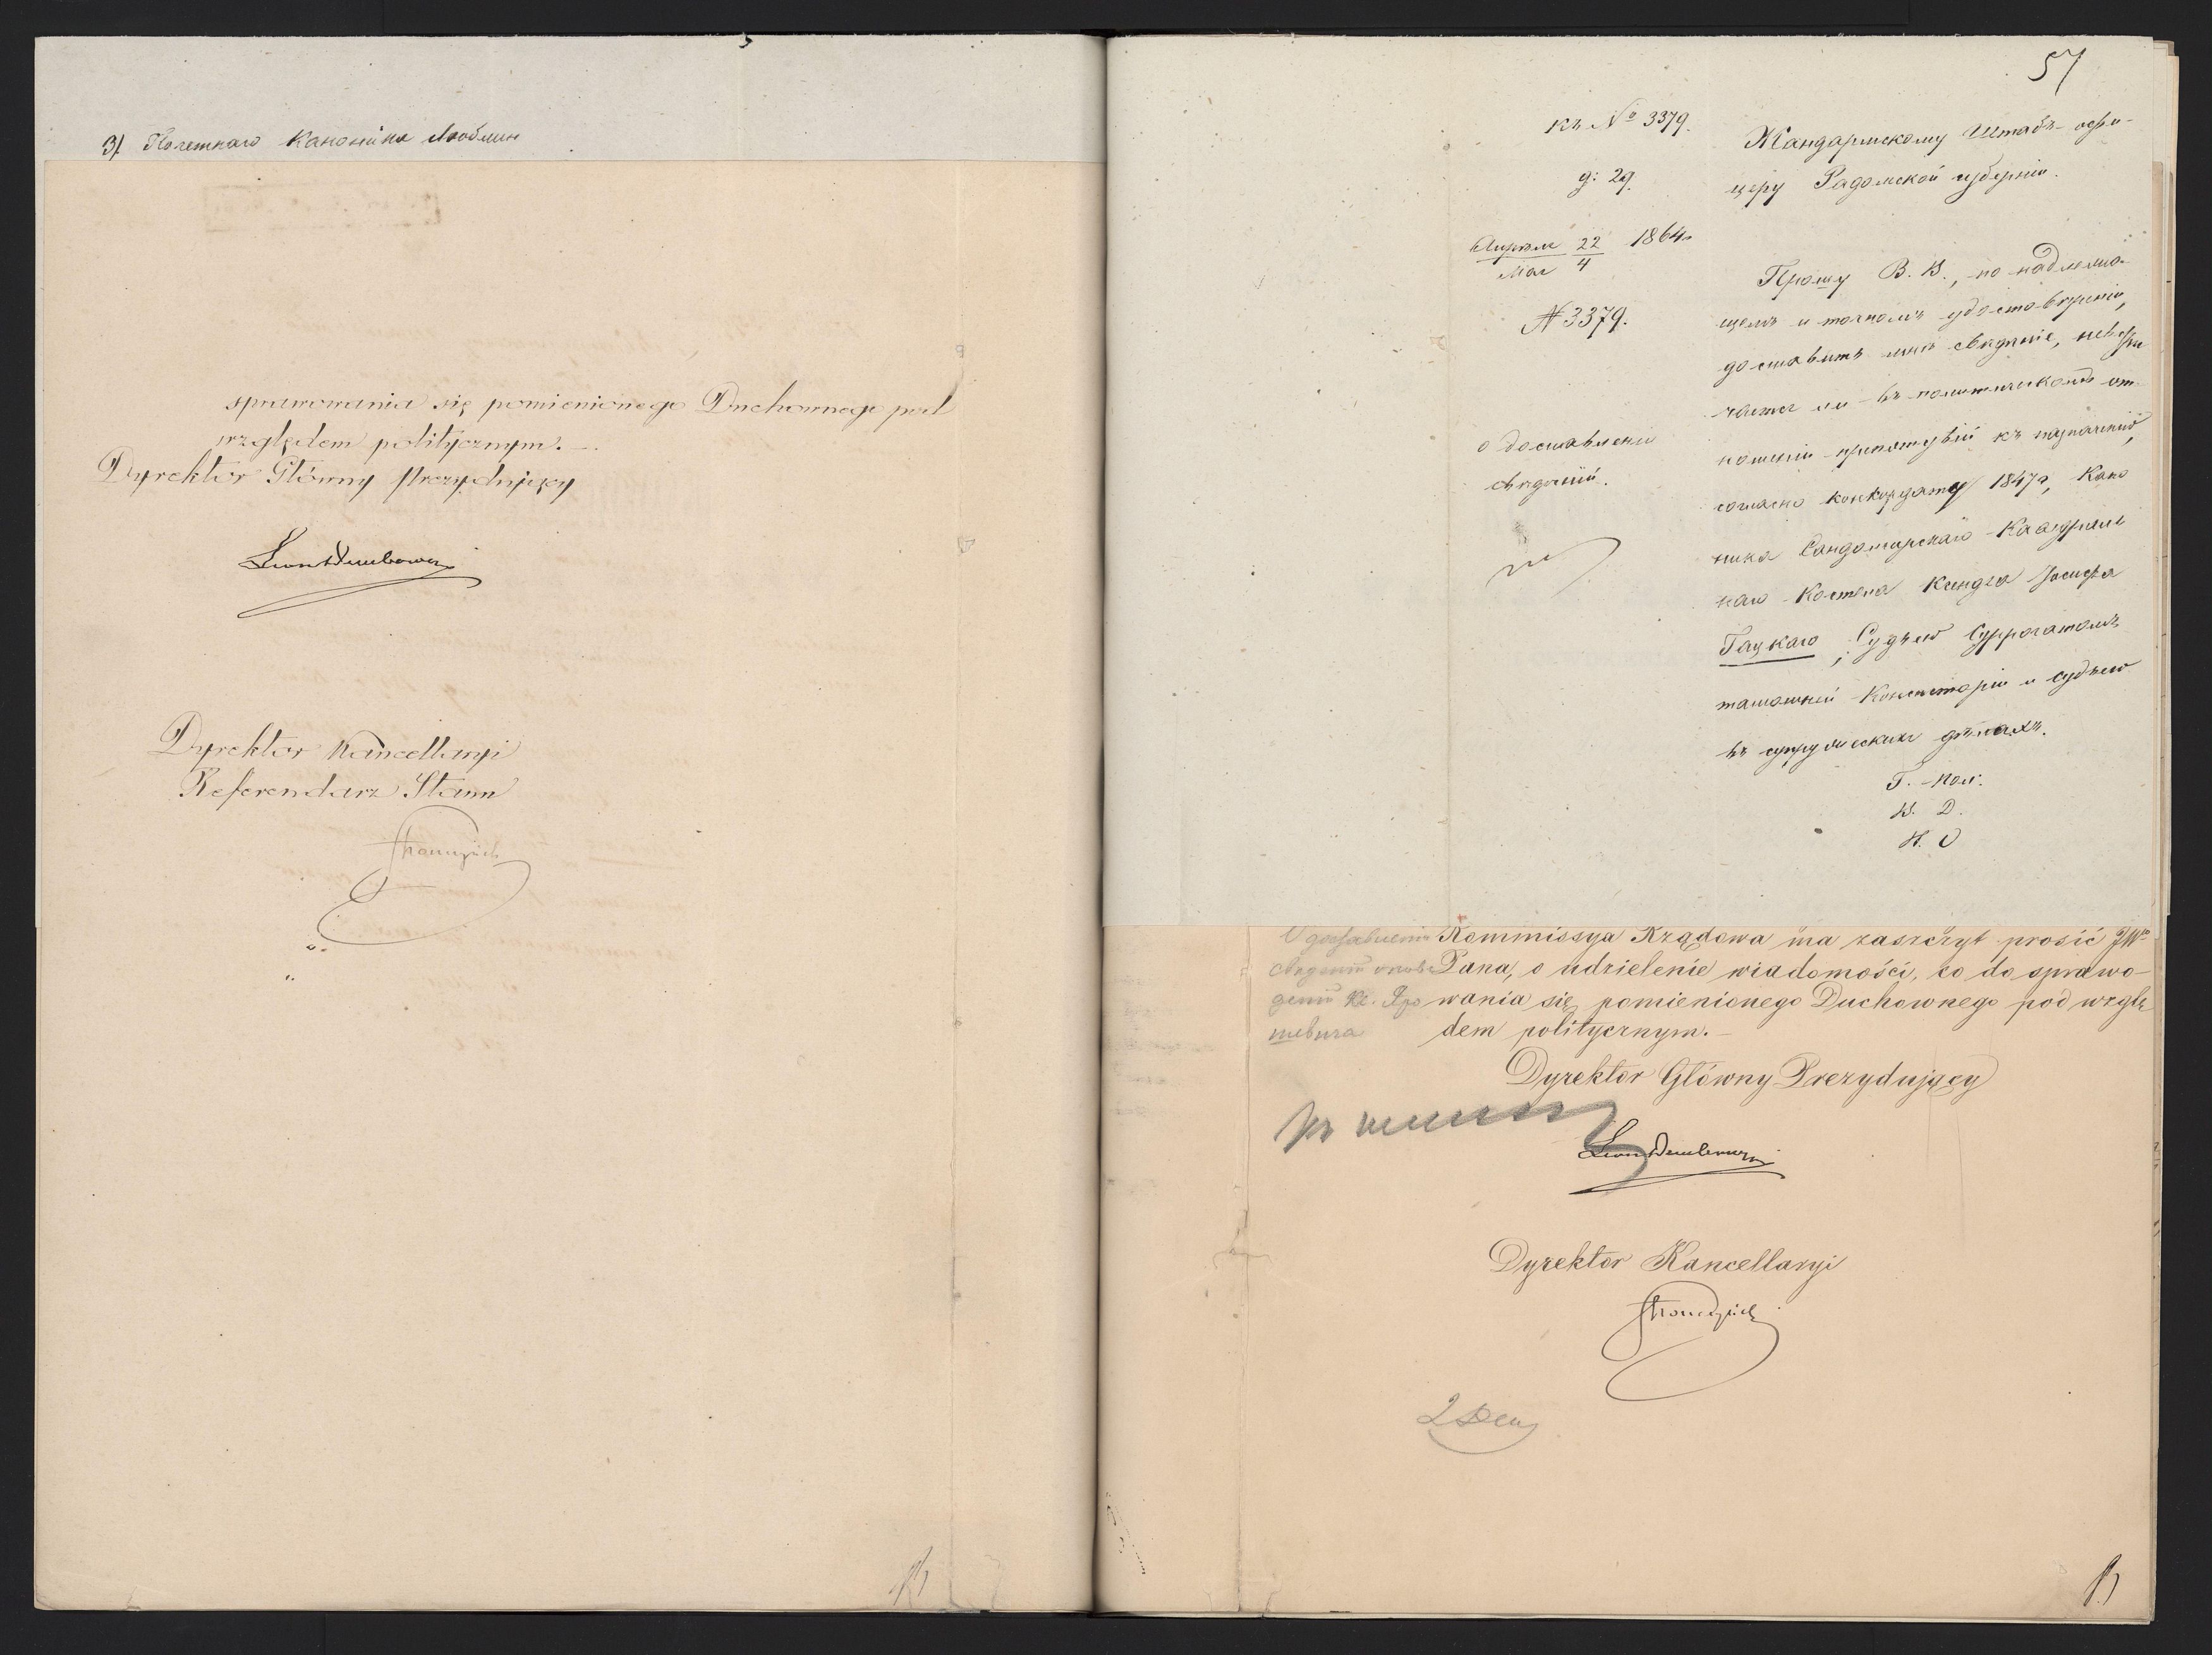 3). Почетнаго Каноника Люблин
sprawowania się pomienionego Duchownego pod
względem politycznym.
Dyrektor Główny Prezydujący
Leon Dembowski
Dyrektor Kancellaryi
Referendarz Stanu
57
Къ № 3379.
д: 29.
Апрѣля 22 1864
Мая 4
№ 3379.
о доставленіи
свѣдѣній.
Жандармскому Штабъ-офи-
церу Радомской губерніи.
Прошу В. В., по надлежа-
щемъ и точномъ удостовѣреніи,
доставить мнѣ свѣдѣніе, не встрѣ
чается ли въ политическомъ от-
ношеніи препятствій къ назначенію,
согласно конкордату 1847 г., Кано
ника Сандомирскаго Каѳедраль
наго Костела Ксендза Іосифа
Гацкаго, Судьею Суррогатомъ
тамошней Консисторіи и судьею
въ супружескихъ дѣлахъ.
Г. - Пол.
В. Д.
Н. О
О доставленіи
свѣдѣній
Kommissya Rządowa ma zaszczyt prosić JWo
Pana, o udzielenie wiadomości, co do sprawo-
wania się pomienionego Duchownego pod wzglę
dem politycznym.-
Dyrektor Główny Prezydujący
Leon Dembowski
Dyrektor Kancellaryi